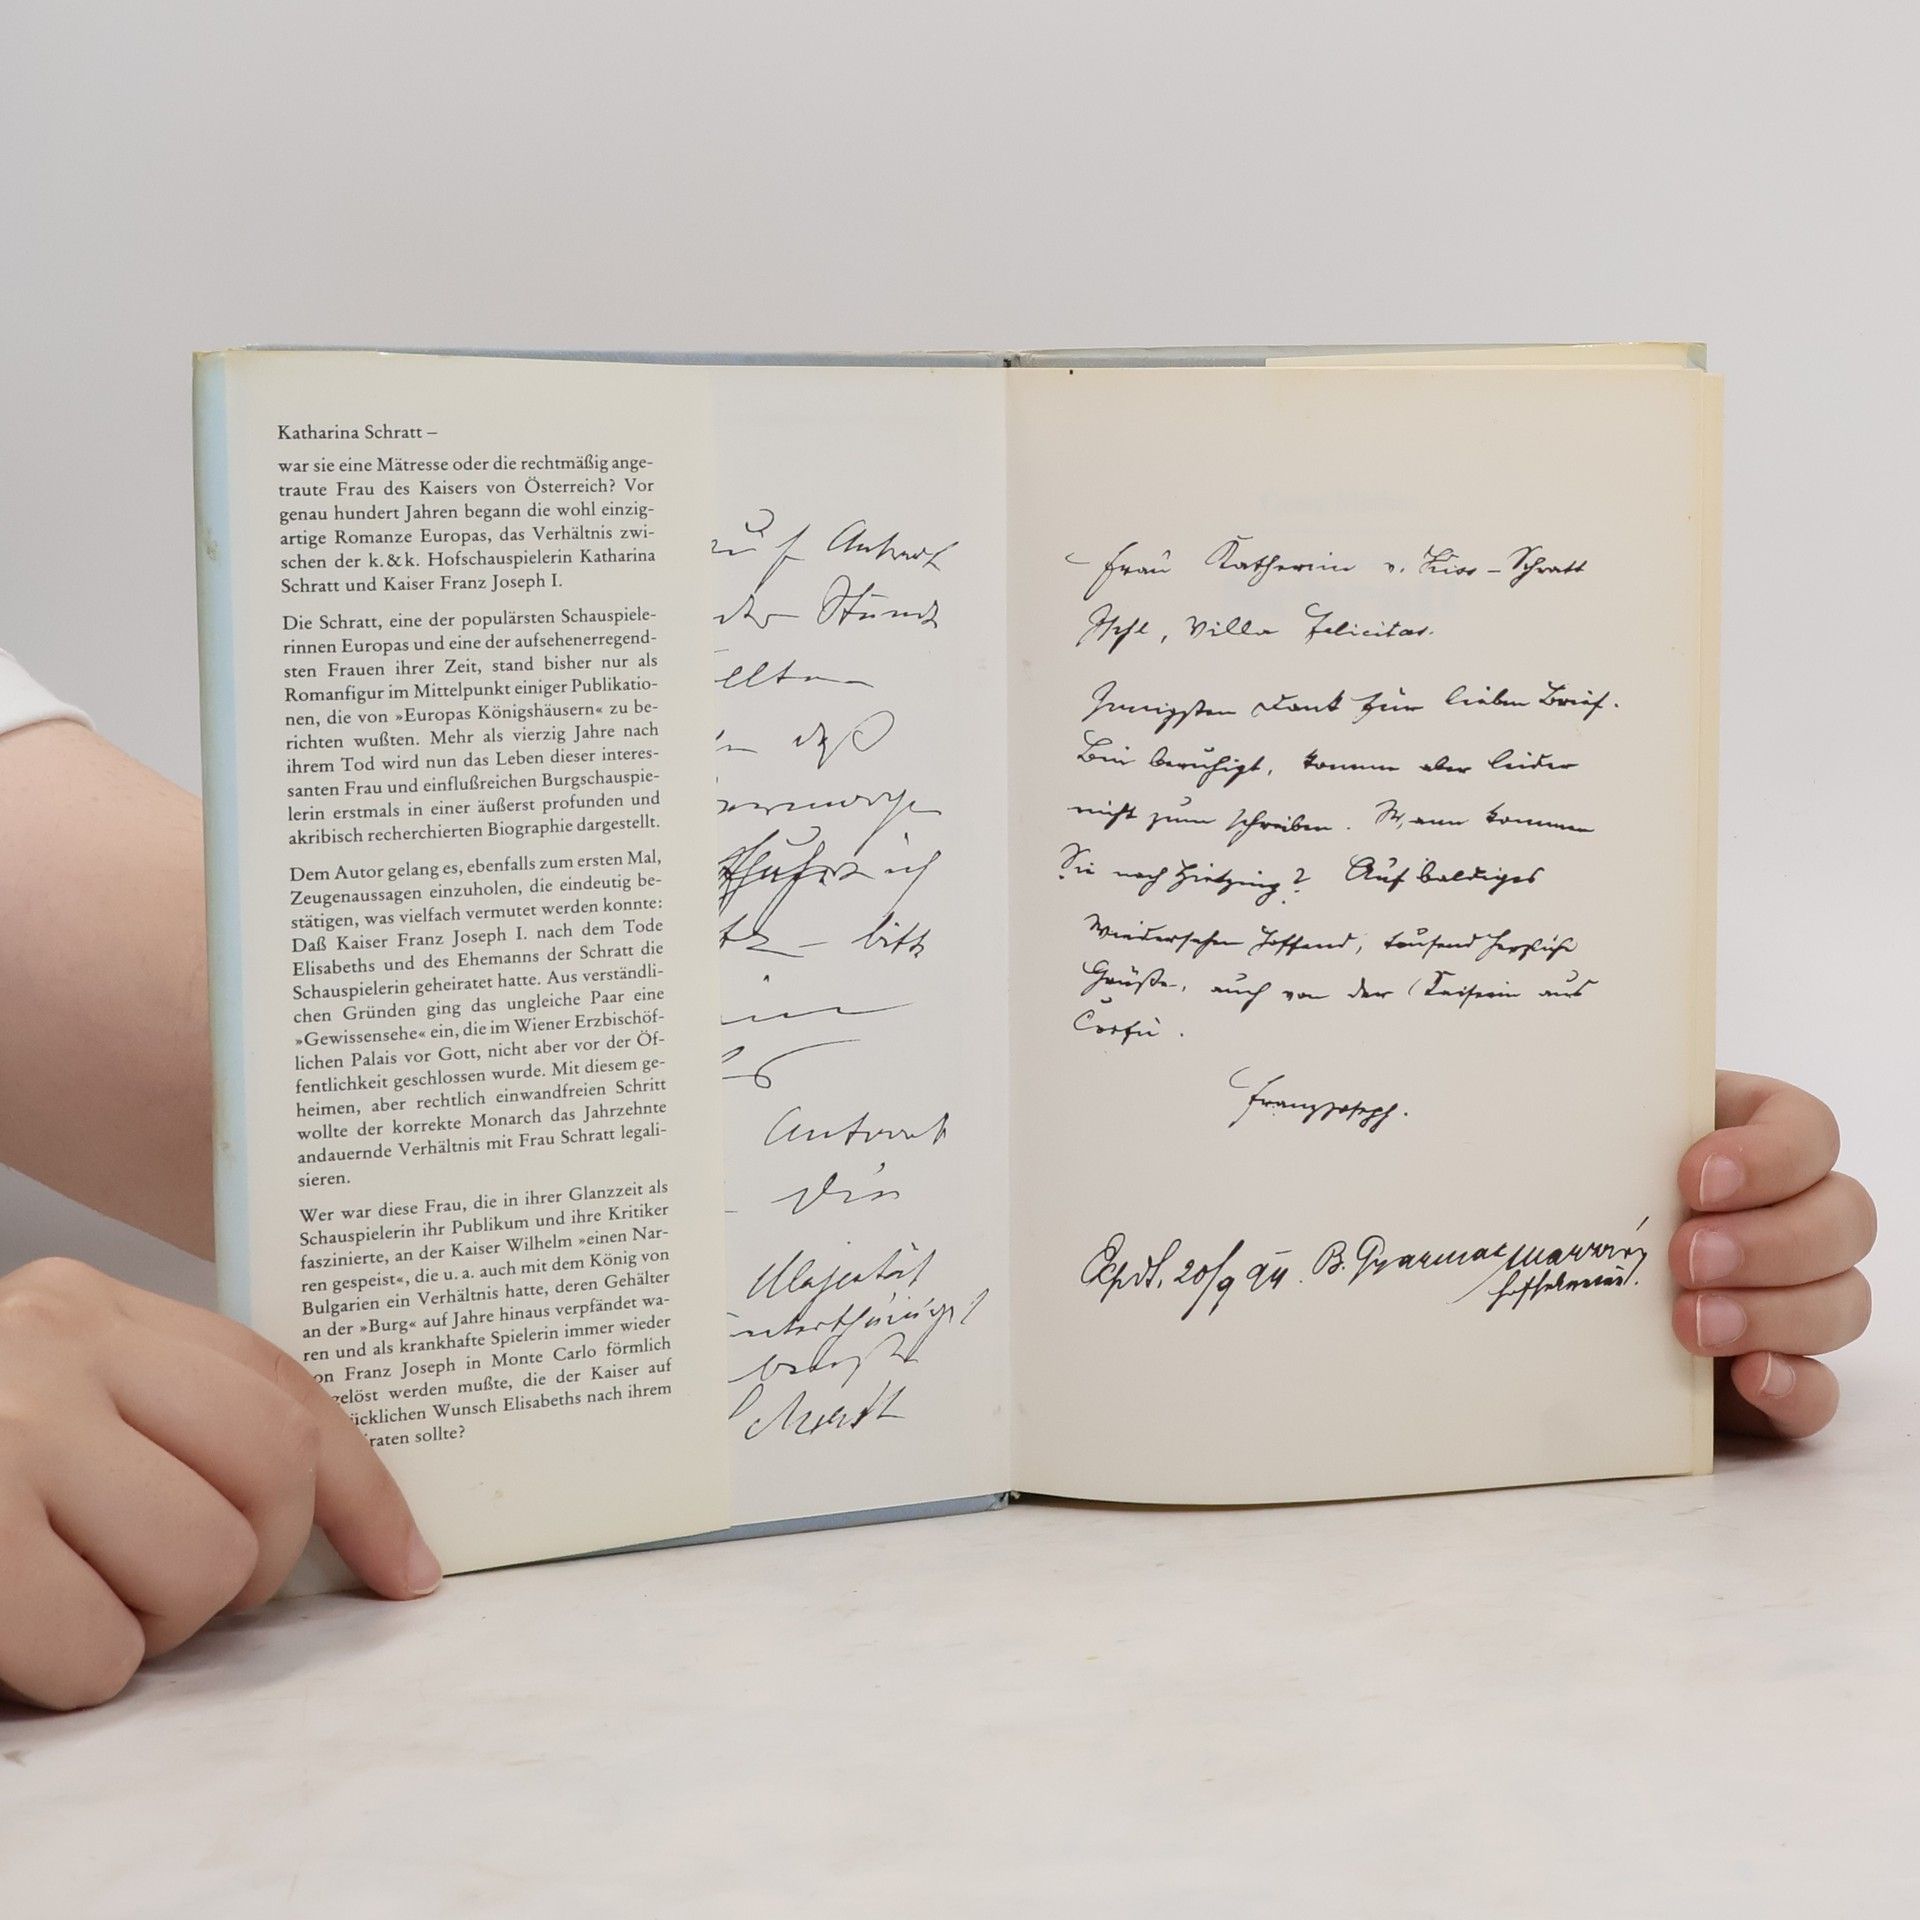 Katharina Schratt –
war sie eine Mätresse oder die rechtmäßig ange-
traute Frau des Kaisers von Österreich? Vor
genau hundert Jahren begann die wohl einzig-
artige Romanze Europas, das Verhältnis zwi-
schen der k. & k. Hofschauspielerin Katharina
Schratt und Kaiser Franz Joseph I.
Die Schratt, eine der populärsten Schauspiele-
rinnen Europas und eine der aufsehenerregend-
sten Frauen ihrer Zeit, stand bisher nur als
Romanfigur im Mittelpunkt einiger Publikatio-
nen, die von »Europas Königshäusern« zu be-
richten wußten. Mehr als vierzig Jahre nach
ihrem Tod wird nun das Leben dieser interes-
santen Frau und einflußreichen Burgschauspie-
lerin erstmals in einer äußerst profunden und
akribisch recherchierten Biographie dargestellt.
Dem Autor gelang es, ebenfalls zum ersten Mal,
Zeugenaussagen einzuholen, die eindeutig be-
stätigen, was vielfach vermutet werden konnte:
Daß Kaiser Franz Joseph I. nach dem Tode
Elisabeths und des Ehemanns der Schratt die
Schauspielerin geheiratet hatte. Aus verständli-
chen Gründen ging das ungleiche Paar eine
»Gewissensehe« ein, die im Wiener Erzbischöf-
lichen Palais vor Gott, nicht aber vor der Öf-
fentlichkeit geschlossen wurde. Mit diesem ge-
heimen, aber rechtlich einwandfreien Schritt
wollte der korrekte Monarch das Jahrzehnte
andauernde Verhältnis mit Frau Schratt legali-
sieren.
Wer war diese Frau, die in ihrer Glanzzeit als
Schauspielerin ihr Publikum und ihre Kritiker
faszinierte, an der Kaiser Wilhelm »einen Nar-
ren gespeist«, die u. a. auch mit dem König von
Bulgarien ein Verhältnis hatte, deren Gehälter
an der »Burg« auf Jahre hinaus verpfändet wa-
ren und als krankhafte Spielerin immer wieder
on Franz Joseph in Monte Carlo förmlich
gelöst werden mußte, die der Kaiser auf
ücklichen Wunsch Elisabeths nach ihrem
raten sollte?
auf Antwort
der Stunde
daß
ich
bitte
Antwort
Die
Majestät
unterthänigst
Schratt
Frau Katharina v. Kiss-Schratt
Ischl, Villa Felicitas.
Innigsten Dank für lieben Brief.
Bin beruhigt, komme aber leider
nicht zum schreiben. Wann kommen
Sie nach Hietzing? Auf baldiges
Wiedersehen hoffend, tausend herzliche
Grüße, auch von der Kaiserin aus
Corfu.
Franz Joseph.
Expdt. 20/9 94. B. Gyarmat